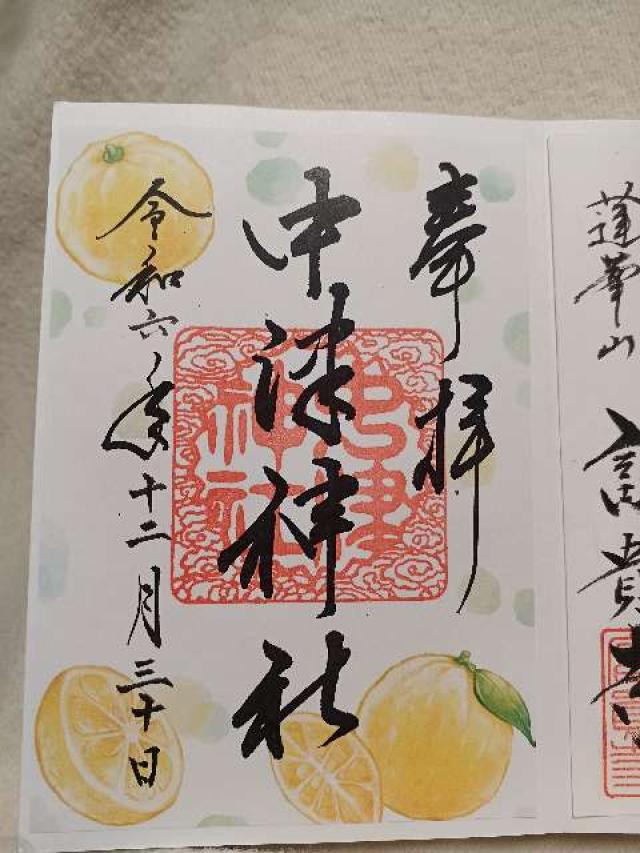 蓬莱山
富貴寺
奉拝
中津神社
中津神社
令和六年十二月三十日